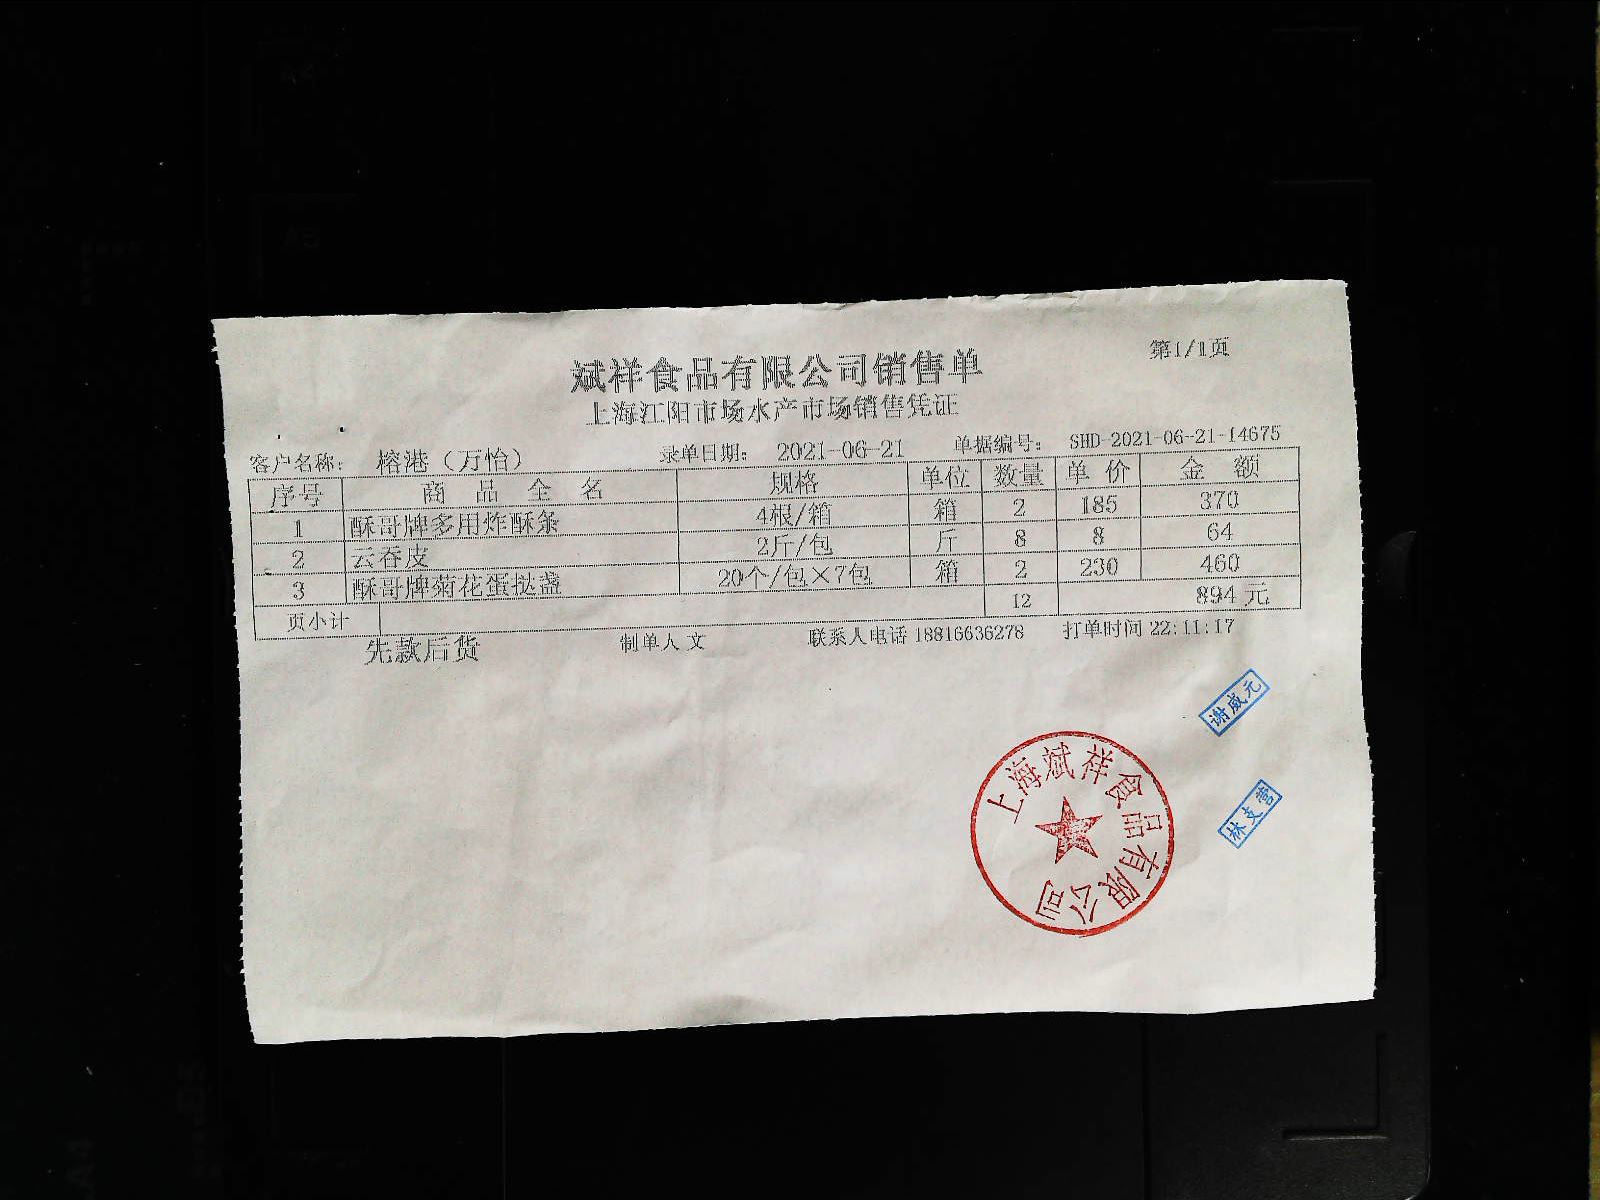 第1/1页
斌祥食品有限公司销售单
上海江阳市场水产市场销售凭证
客户名称: 榕港（万怡） 录单日期: 2021-06-21 单据编号: SHD-2021-06-21-14675
序号 商 品 全 名 规格 单位 数量 单 价 金 额
1 酥哥牌多用炸酥条 4根/箱 箱 2 185 370
2 云吞皮 2斤/包 斤 8 8 64
3 酥哥牌菊花蛋挞盏 20个/包×7包 箱 2 230 460
页小计 12 894 元
先款后货 制单人 文 联系人电话 18816636278 打单时间 22:11:17
谢威元
上海斌祥食品有限公司
林支营